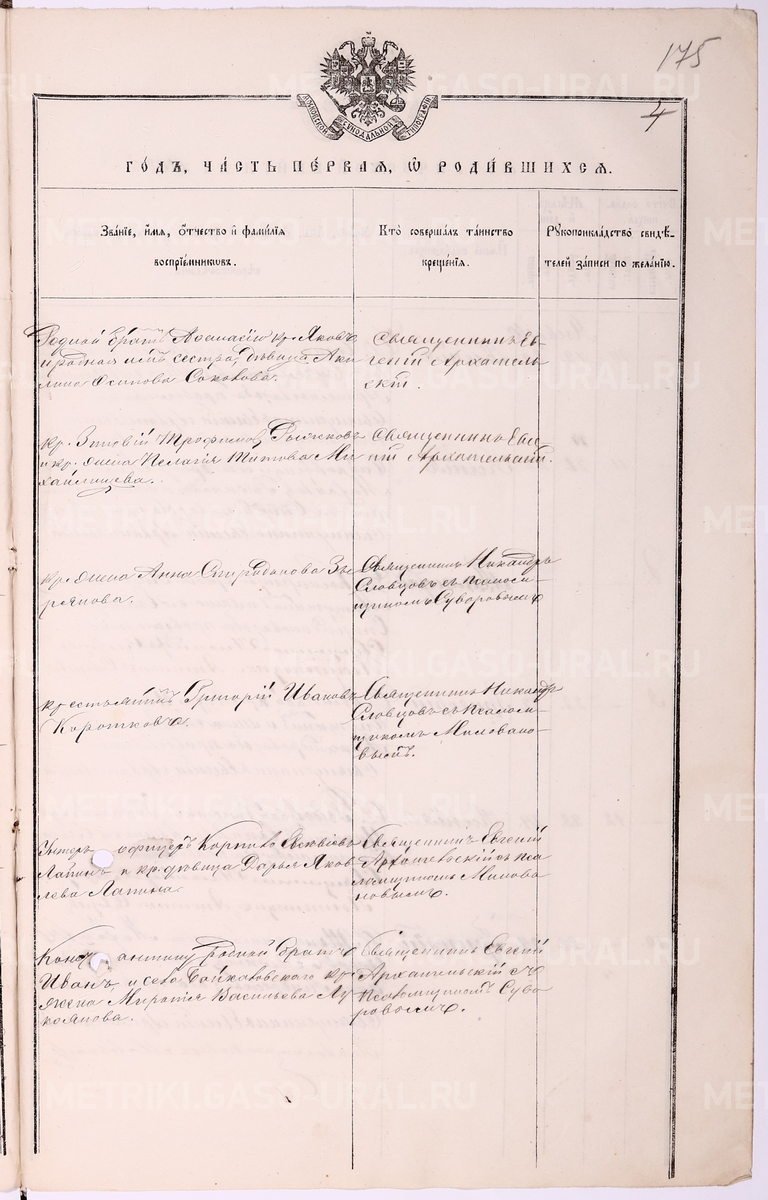 175
4
МОСКОВСКОЙ СѴНОДАЛЬНОЙ ТИПОГРАФІИ
ГО́ДЪ, ЧА́СТЬ ПЕ́РВАЯ, Ѡ҆ РОДИ́ВШИХСЯ.
Зва́нїе, и҆́мя, ѻ҆́тчество и҆ фами́лїя
воспрїе́мниковъ.
Кто̀ соверша́лъ та́инство
креще́нїя.
Рꙋкоприкла́дство свидѣ́-
телей за́писи по жела́нїю.
Родной братъ Афанасію кр. Яковъ
и родная имъ сестра, дѣвица Аки
лина Осипова Соковова.
Священникъ Ев-
геній Архангель-
скій.
кр. Зиновій Трофимовъ
и кр. жена Пелагія Титова Ми
хайлищева.
Священникъ Евге
ній Архангельскій.
кр. жена Анна Спиридонова Зы
рянова.
Священникъ Никандръ
Словцовъ съ псалом-
щикомъ Суворовымъ
крестьянинъ Григорій Ивановъ
Коротковъ.
Священникъ Никандръ
Словцовъ съ псалом-
щикомъ Милова-
новымъ.
Унтеръ-офицеръ
Лапинъ и кр. дѣвица Дарья Яков
лева Лапина
Священникъ Евгеній
Архангельскій съ пса
ломщикомъ Милова
новымъ.
родной братъ
Иванъ и села Байкаловскаго кр.
жена Васильева Лу
коянова.
Священникъ Евгеній
Архангельскій съ
псаломщикомъ Суво
ровымъ.
METRIKI.GASO-URAL.RU